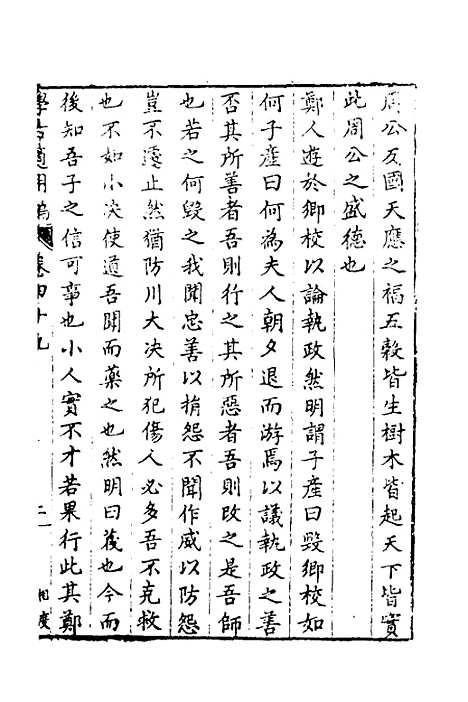 周公反國天應之福五穀皆生樹木皆起天下皆實
此周公之盛德也
鄭人遊於鄉校以論執政然明謂子產曰毀鄉校如
何子產曰何為夫人朝夕退而游焉以議執政之善
否其所善者吾則行之其所惡者吾則改之是吾師
也若之何毀之我聞忠善以損怨不聞作威以防怨
豈不遽止然猶防川大決所犯傷人必多吾不克救
也不如小决使道吾聞而藥之也然明曰蔑也今而
後知吾子之信可事也小人實不才若果行此其鄭
學古適用編 卷四十九
二
相度